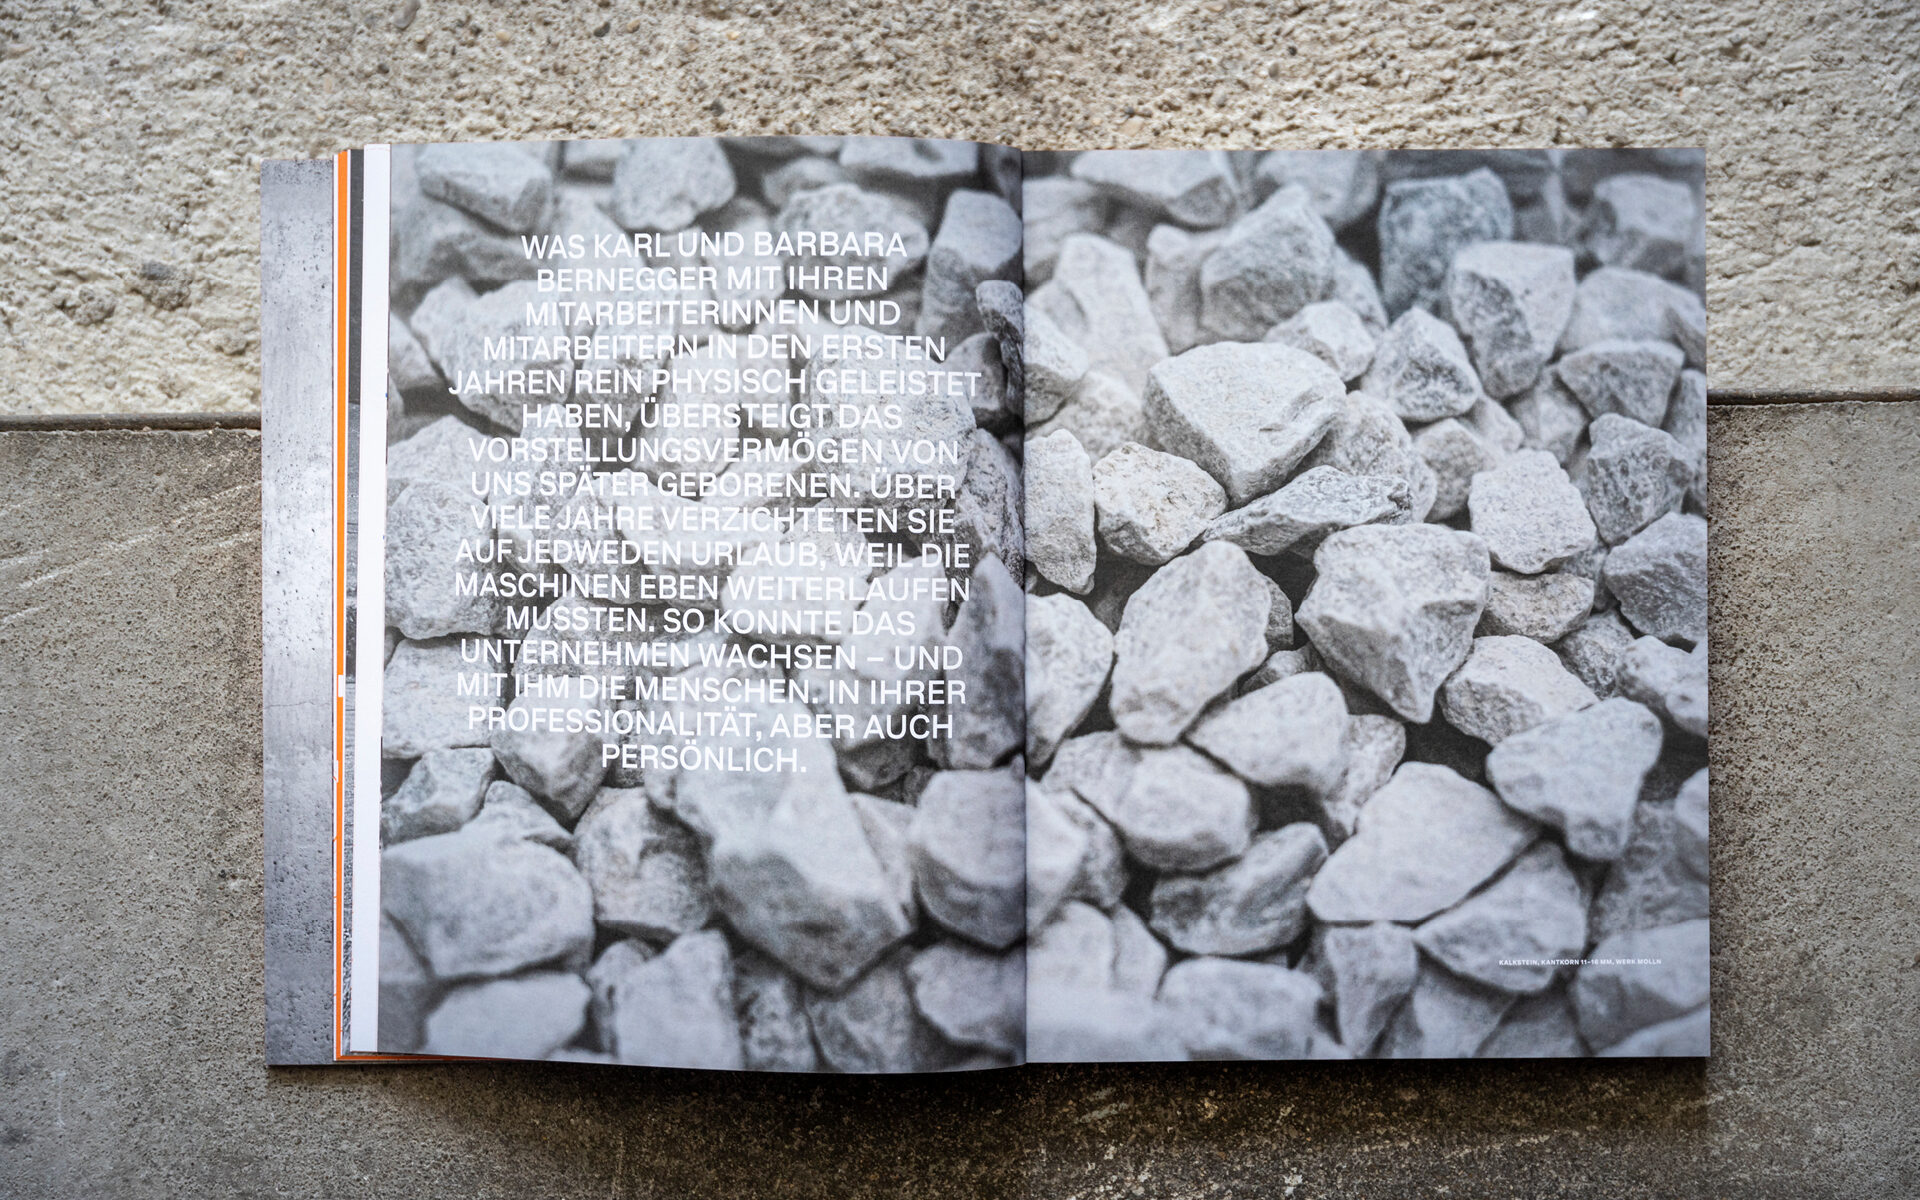 WAS KARL UND BARBARA
BERNEGGER MIT IHREN
MITARBEITERINNEN UND
MITARBEITERN IN DEN ERSTEN
JAHREN REIN PHYSISCH GELEISTET
HABEN, ÜBERSTEIGT DAS
VORSTELLUNGSVERMÖGEN VON
UNS SPÄTER GEBORENEN. ÜBER
VIELE JAHRE VERZICHTETEN SIE
AUF JEDWEDEN URLAUB, WEIL DIE
MASCHINEN EBEN WEITERLAUFEN
MUSSTEN. SO KONNTE DAS
UNTERNEHMEN WACHSEN – UND
MIT IHM DIE MENSCHEN. IN IHRER
PROFESSIONALITÄT, ABER AUCH
PERSÖNLICH.
KALKSTEIN, KANTKORN 11–16 MM, WERK MOLLN